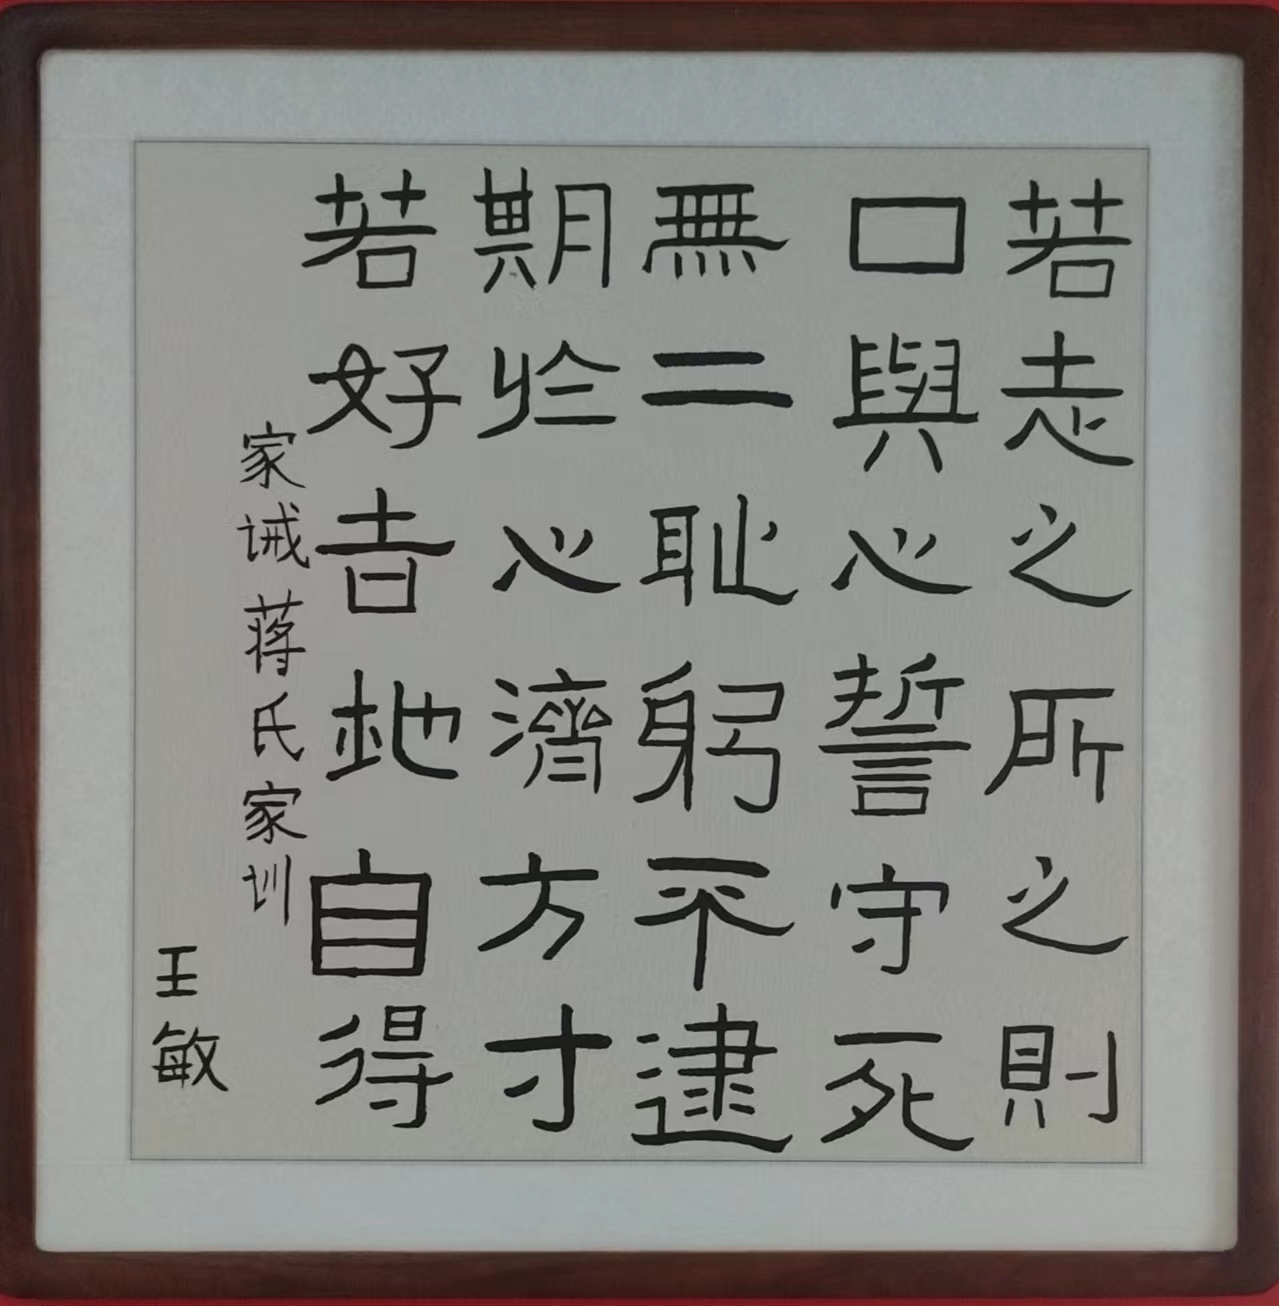 若志之所之則
口與心誓守死
無二耻躬不逮
期於心濟方寸
若好吉地自得
家诫蒋氏家训
王敏